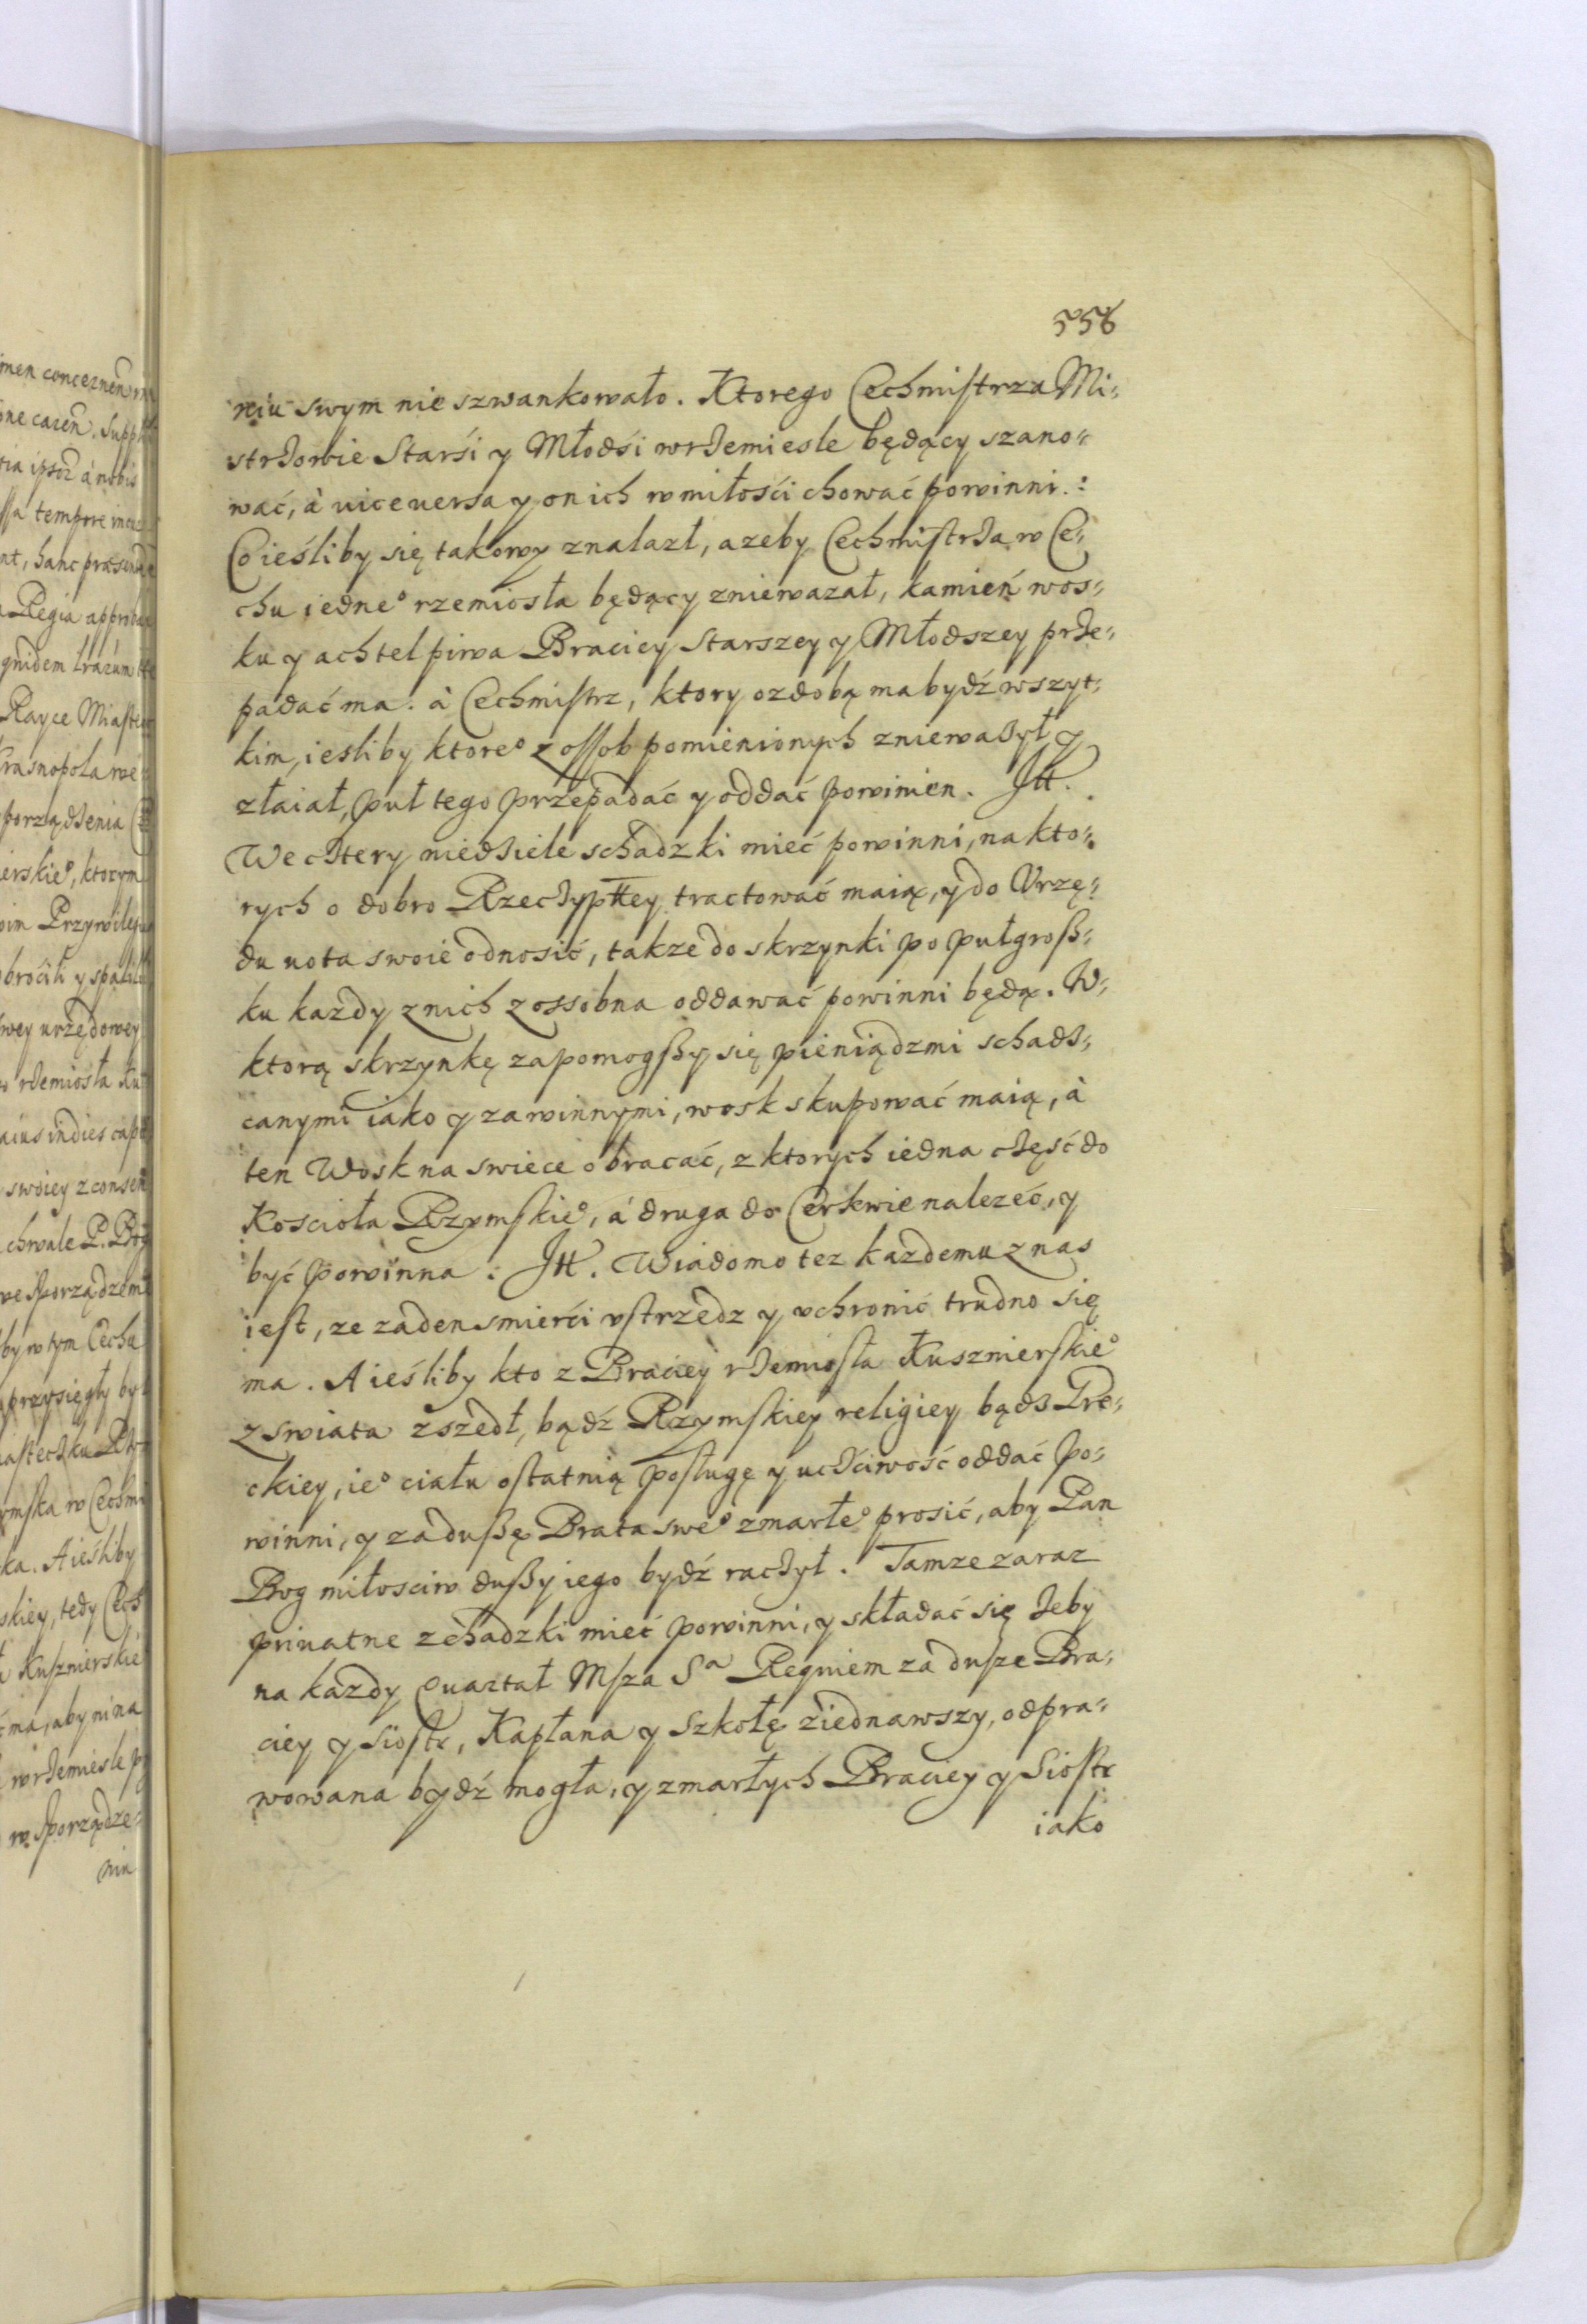 558
niu swym nie szwankowało. Ktorego Cechmistrza Mi-
strzowie Starśi y Młodśi w rzemiesle będący szano-
wać, à vice versa y on ich w miłośći chować powinni:
Co ieśliby się takowy znalazł, azeby Cechmistrza w Ce-
chu iedne° rzemiosła będący zniewazał, kamień wos-
ku y achtel piwa Braciey Starszey y Młodszey prze-
padać ma. à Cechmistrz, ktory ozdobą ma bydź wszyt-
kim, iesliby ktore° z ossob pomienionych zniewazył y
złaiał, puł tego przepadać y oddać powinien. Itt.
We cztery niedziele schadzki mieć powinni, na kto-
rych o dobro Rzeczypttey tractować maią, y do Vrzę-
du uota swoie odnosić, takze do skrzynki po pułgroß-
ku kazdy z nich z ossobna oddawać powinni będą. W
ktorą skrzynkę zapomogßy się pieniądzmi schadz-
canymi iako y zawinnymi, wosk skupować maią, à
ten Wosk na swiece obracać, z ktorych iedna część do
Koscioła Rzymskie°, á druga do Cerkwie nalezeć, y
być powinna: Itt. Wiadomo tez kazdemu z nas
iest, ze zaden smierći vstrzedz y vchronić trudno się
ma. A ieśliby kto z Braciey rzemiosła Kusznierskie°
z swiata zszedł, bądź Rzymskiey religiey bądz Gre-
ckiey, ie° ciału ostatnią posługę y uczciwość oddać po-
winni, y za dußę Brata swe° zmarłe° prosić, aby Pan
Bog miłosciw dußy iego bydź raczył. Tamze zaraz
priuatne zchadzki mieć powinni, y składać się zeby
na kazdy Quartał Msza Sª Requiem za dusze Bra-
ciey y Siostr, Kapłana y Szkołę ziednawszy, odpra-
wowana bydź mogła, y zmarłych Braciey y Siostr
iako